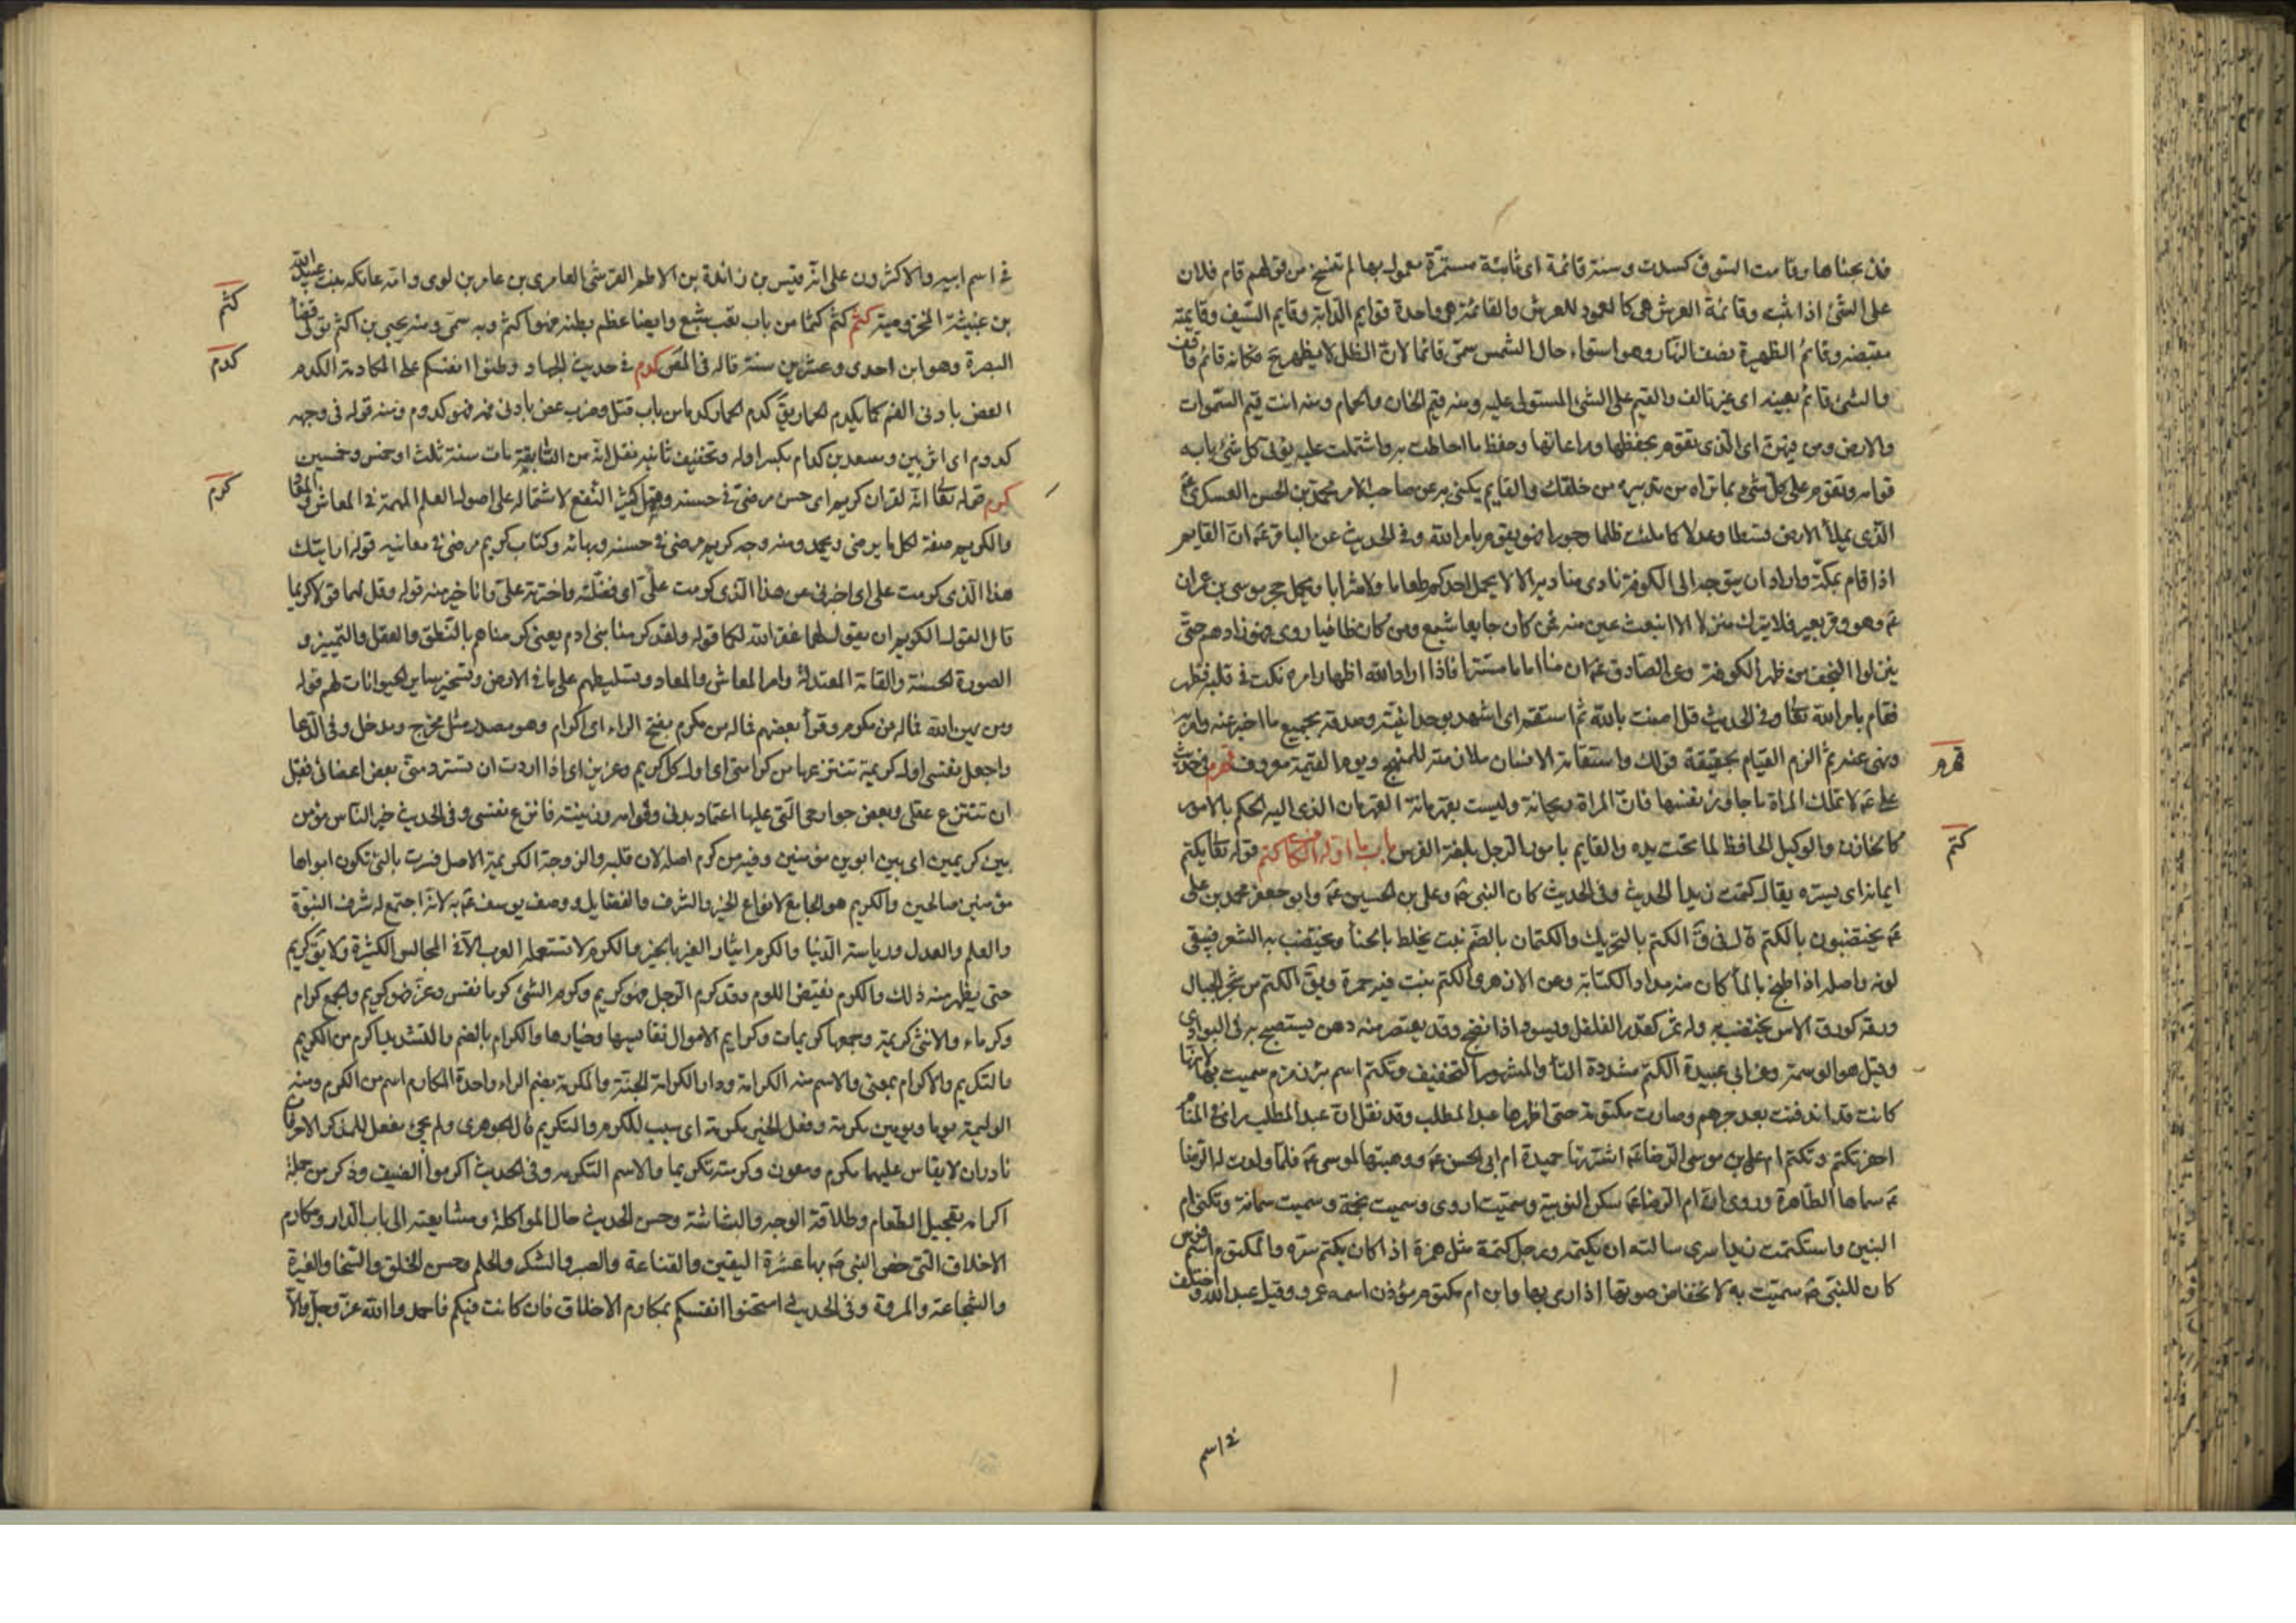 فذبحناها وقامت السوق كسدت وسنة قائمة اى ثابتة مستمرة معمول بها لم تنسخ من قولهم قام فلان
على الشئ اذا ثبت وقائمة العرش هى كالعمود للعرش والقائمة هى واحدة قوايم الدابة وقايم السيف وقايمته
مقبضه وقائم الظهيرة نصف النهار وهو استواء حال الشمس سمى قائما لان الظل لا يظهر ح فكانه قائم واقف
والشئ قائم بعينه اى غير تالف والقيم على الشئ المستولى عليه ومنه قيم الخان والحمام ومنه انت قيم السموات
والارض ومن فيهن اى الذى تقوم بحفظها ومراعاتها وحفظ ما احاطت به واشتملت عليه يؤتى كل شئ ما به
قوامه وتقوم على كل شئ بما تراه من تدبيره من خلقك والقايم يكنى به عن صاحب الامر محمد بن الحسن العسكرى ع
الذى يملأ الارض قسطا وعدلا كما ملئت ظلما وجورا فهو يقوم بامر الله وفى الحديث عن الباقر ع ان القايم
اذا قام بمكة واراد ان يتوجه الى الكوفة نادى مناديه الا لا يحمل احدكم طعاما ولا شرابا ويحمل حجر موسى بن عمران
ع وهو وقر بعير فلا ينزل منزلا الا انبعث عين منه فمن كان جايعا شبع ومن كان ظاميا روى فهو زادهم حتى
ينزلوا النجف من ظهر الكوفة وعن الصادق ع ان منا اماما مستترا فاذا اراد الله اظهار امره نكت فى قلبه فظهر
فقام بامر الله تعالى وفى الحديث قل امنت بالله ثم استقم اى اشهد بوحدانيته وصدقه بجميع ما اخبر عنه وامر به
ونهى عنه ثم الزم القيام بحقيقة قولك واستقامة الانسان ملازمته للمنهج ويوم القيمة معروف قهرم فى حديث
على ع لا تملك المراة ما جاوز نفسها فان المراة ريحانة وليست بقهرمانة القهرمان الذى اليه الحكم بالامور
كالخازن والوكيل الحافظ لما تحت يده والقايم بامور الرجل بلغة الفرس باب ما اوله الكاف كتم قوله تعالى يكتم
ايمانه اى يستره يقال كتمت زيدا الحديث وفى الحديث كان النبى ص وعلى بن الحسين ع وابو جعفر محمد بن على
ع يختضبون بالكتم قال فى ق الكتم بالتحريك والكتمان بالضم نبت يخلط بالحنا ويختضب به الشعر فيبقى
لونه واصله اذا طبخ بالماء كان منه مداد للكتابة وعن الازهرى الكتم نبت فيه حمرة ويق الكتم من شجر الجبال
ورقه كورق الاس يختضب به وله ثمر كقدر الفلفل ويسود اذا نضج وقد يعتصر منه دهن يستصبح به فى البوادى
وقيل هو الوسمة وعن ابى عبيدة الكتم مشددة التاء والمشهور التخفيف وتكتم اسم بئر زمزم سميت بها لانها
كانت قد اندفنت بعد جرهم وصارت مكتومة حتى اظهرها عبد المطلب وقد نقل ان عبد المطلب راى فى المنام
احفر تكتم وتكتم ام على بن موسى الرضا ع اشترتها حميدة ام ابى الحسن ع ووهبتها لموسى ع فلما ولدت له الرضا
ع سماها الطاهرة وروى ان ام الرضا ع سكن النوبية وسميت اروى وسميت نجمة وسميت سمانة وتكنى ام
البنين واستكتمت زيدا سرى سالته ان يكتمه ورجل كتمة مثل همزة اذا كان يكتم سره والمكتوم اسم قوس
كان للنبى ص سميت به لانخفاض صوتها اذا رمى بها وابن ام مكتوم مؤذن اسمه عمرو وقيل عبد الله واختلف
فى اسم
قهرم
كتم
فى اسم ابيه والاكثرون على انه قيس بن زائدة بن الاصم القرشى العامرى بن عامر بن لوى وامه عاتكه بنت عبد الله
بن عنبثة المخزومية كثم كثم كثما من باب تعب شبع وايضا عظم بطنه فهو اكثم وبه سمى ومنه يحيى بن اكثم تولى قضا
البصرة وهو ابن احدى وعشرين سنة قاله فى المص كدم فى حديث الجهاد وطنوا انفسكم على المكادمة الكدم
العض بادنى الفم كما يكدم الحمار يق كدم الحمار كدما من باب قتل وضرب عض بادنى فمه فهو كدوم ومنه قوله فى وجهه
كدوم اى اثر بين ومسعد بن كدام بكسر اوله وتخفيف ثانيه نقل انه من السابقين مات سنة ثلث او خمس وخمسين
كرم قوله تعالى انه لقران كريم اى حسن مرضى فى جنسه وقيل كثير النفع لاشتماله على اصول العلم المهمة فى المعاش والمعاد
والكريم صفة لكل ما يرضى ويحمد ومنه وجه كريم مرضى فى حسنه وبهائه وكتاب كريم مرضى فى معانيه قوله ارايتك
هذا الذى كرمت على اى اخبرنى عن هذا الذى كرمت على اى فضلته واخترته على وانا خير منه قوله وقل لهما قولا كريما
قال القول الكريم ان يقول لهما غفر الله لكما قوله ولقد كرمنا بنى ادم يعنى كرمناهم بالنطق والعقل والتمييز و
الصورة الحسنة والقامة المعتدلة وامر المعاش والمعاد وتسليطهم على ما فى الارض وتسخير ساير الحيوانات لهم قوله
ومن يهن الله فما له من مكرم وقرأ بعضهم فما له من مكرم بفتح الراء اى اكرام وهو مصدر مثل مخرج ومدخل وفى الدعا
واجعل نفسى اول كريمة تنتزعها من كرائمى اى اول كل كريم وعزيز اى اذا اردت ان تسترد منى بعض اعضائى فقبل
ان تنتزع عقلى وبعض جوارحى التى عليها اعتماد بدنى وقوامه وزينته فانزع نفسى وفى الحديث خير الناس مؤمن
بين كريمين اى بين ابوين مؤمنين وفيه من كرم اصله لان قلبه والزوجة الكريمة الاصل فسرت بالتى تكون ابواها
مؤمنين صالحين والكريم هو الجامع لانواع الخير والشرف والفضايل ووصف يوسف ع به لانه اجتمع له شرف النبوة
والعلم والعدل ورياسة الدنيا والكرم ايثار الغير بالخير والكرم لا تستعمله العرب الا فى المجالس الكثيرة ولا يق كريم
حتى يظهر منه ذلك والكرم نقيض اللوم وقد كرم الرجل فهو كريم وكرم الشئ كرما نفس وعز فهو كريم والجمع كرام
وكرماء والانثى كريمة وجمعها كريمات وكرايم الاموال نفايسها وخيارها والكرام بالضم والتشديد اكرم من الكريم
والتكريم والاكرام بمعنى والاسم منه الكرامة ودار الكرامة الجنة والمكرمة بضم الراء واحدة المكارم اسم من الكرم ومنه
الوليمة يوما ويومين مكرمة وفعل الخير مكرمة اى سبب للكرم والتكريم قال الجوهرى ولم يجئ مفعل للمذكر الا حرفان
نادران لا يقاس عليهما مكرم ومعون وكرمته تكريما والاسم التكرمه وفى الحديث اكرموا الضيف وذكر من جملة
اكرامه تعجيل الطعام وطلاقة الوجه والبشاشة وحسن الحديث حال المواكلة ومشايعته الى باب الدار ومكارم
الاخلاق التى خص النبى ص بها عشرة اليقين والقناعة والصبر والشكر والحلم وحسن الخلق والسخا والغيرة
والشجاعة والمروة وفى الحديث امتحنوا انفسكم بمكارم الاخلاق فان كانت فيكم فاحمدوا الله عز وجل والا
كثم
كدم
كرم